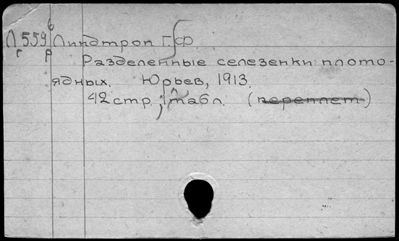 Л 559 б Линдтроп Г. Ф.
г р Разделенные селезенки плото-
ядных. Юрьев, 1913.
42 стр.; табл. (переплет)